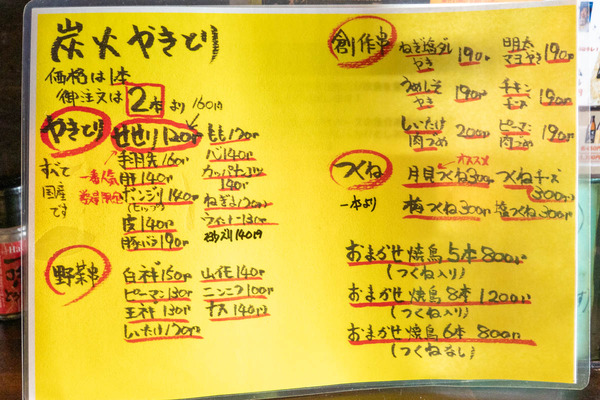 炭火やきとり
価格は1本
御注文は2本より
160円
やきとり
すべて
国産
です
せせり120円
手羽先160円
一番人気
肝140円
ボンジリ140円
皮140円
豚バラ190円
もも120円
ハツ140円
140円
ねぎま
ウィンナー130円
140円
野菜串
白ネギ150円
ピーマン130円
玉ネギ130円
しいたけ120円
山芋140円
ニンニク100円
ナス140円
創作串
ねぎ塩ダレ
やき190円
うめしそ
やき190円
しいたけ
肉づめ200円
明太
マヨやき190円
チキン
チーズ190円
ピーマン
肉づめ190円
つくね
一本より
オススメ
月見つくね300円
梅つくね300円
つくねチーズ
300円
塩つくね300円
おまかせ焼鳥5本800円
(つくね入り)
おまかせ焼鳥8本1200円
(つくね入り)
おまかせ焼鳥6本800円
(つくねなし)